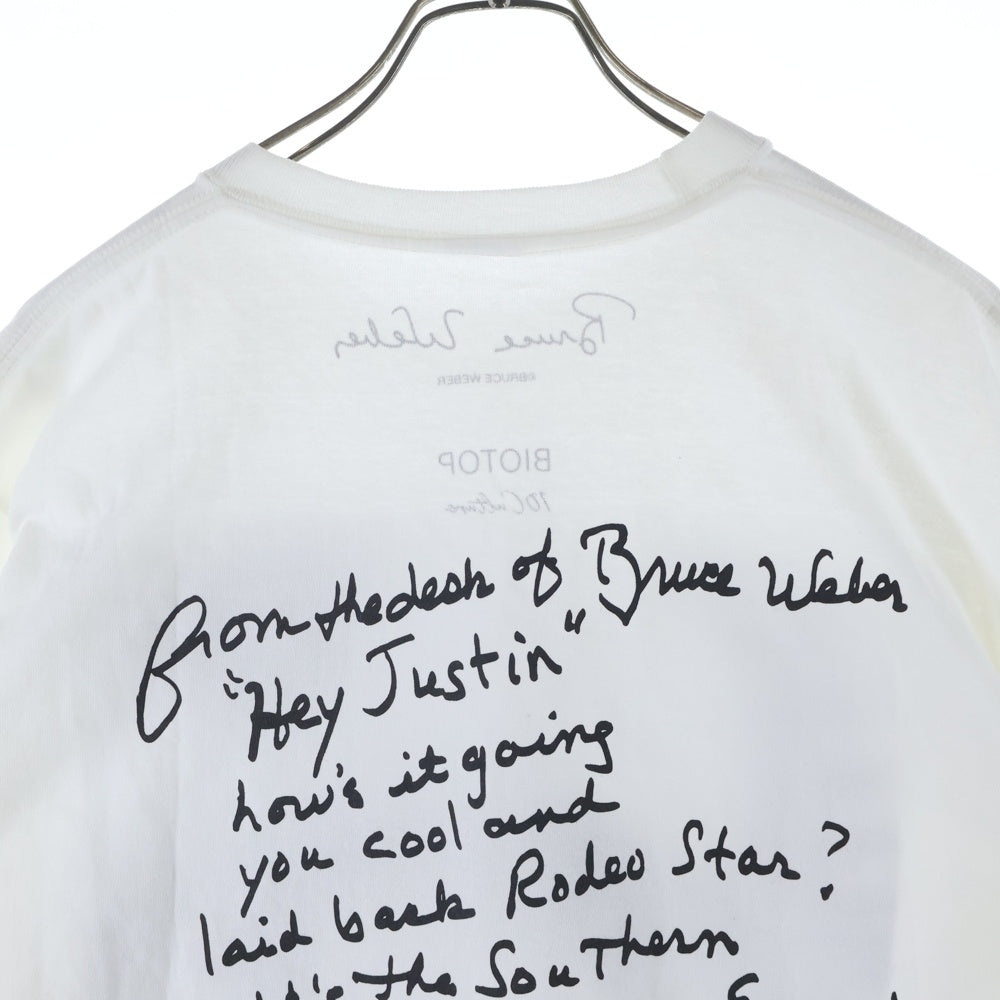 Bruce Weber
©BRUCE WEBER
BIOTOP
10Culture
from the desk of Bruce Weber
"Hey Justin"
how's it going
you cool and
laid back Rodeo Star?
it's the Southern